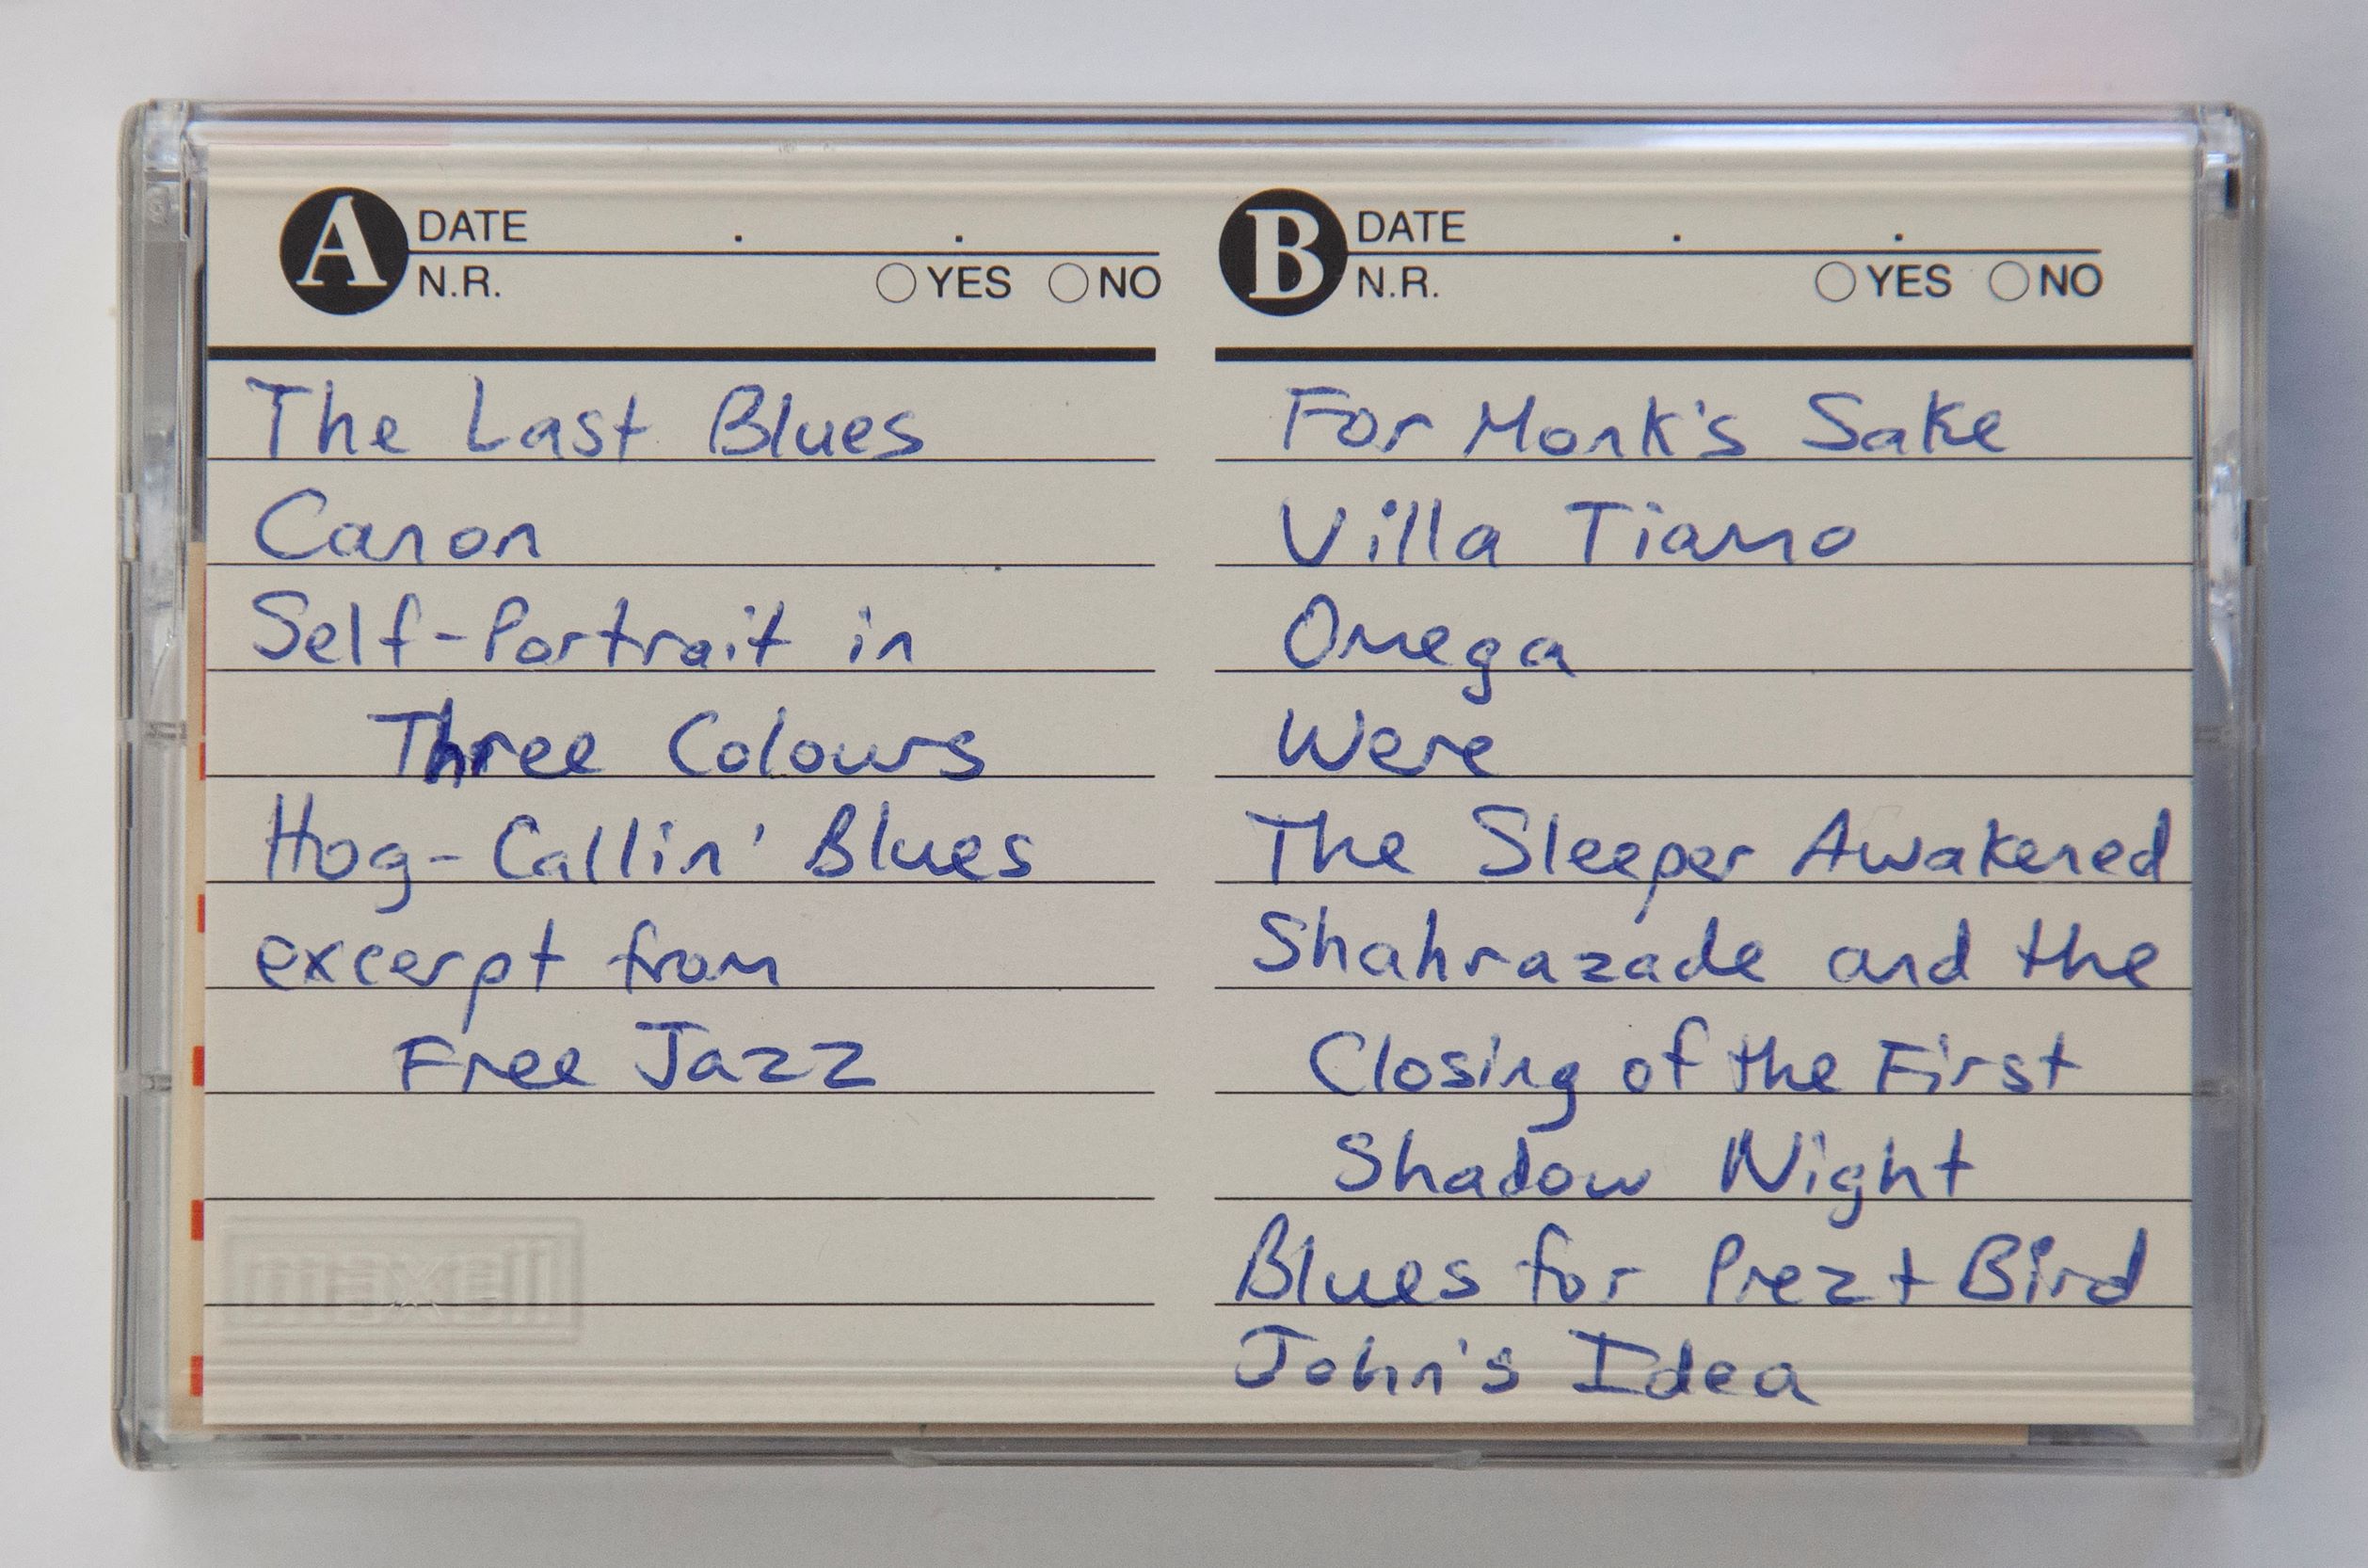 A DATE . .
N.R. YES NO
The Last Blues
Canon
Self-Portrait in
Three Colours
Hog-Callin' Blues
excerpt from
Free Jazz
maxell
B DATE . .
N.R. YES NO
For Monk's Sake
Villa Tiamo
Omega
Were
The Sleeper Awakened
Shahrazade and the
Closing of the First
Shadow Night
Blues for Prez + Bird
John's Idea